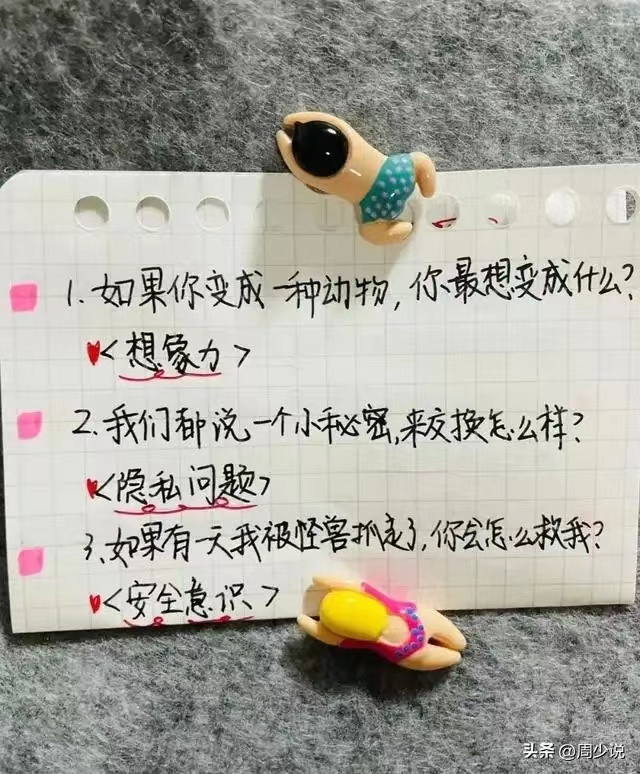 1.如果你变成一种动物,你最想变成什么?
<想象力>
2.我们都说一个小秘密,来交换怎么样?
<隐私问题>
3.如果有一天我被怪兽抓走了,你会怎么救我?
<安全意识>
头条 @周少说